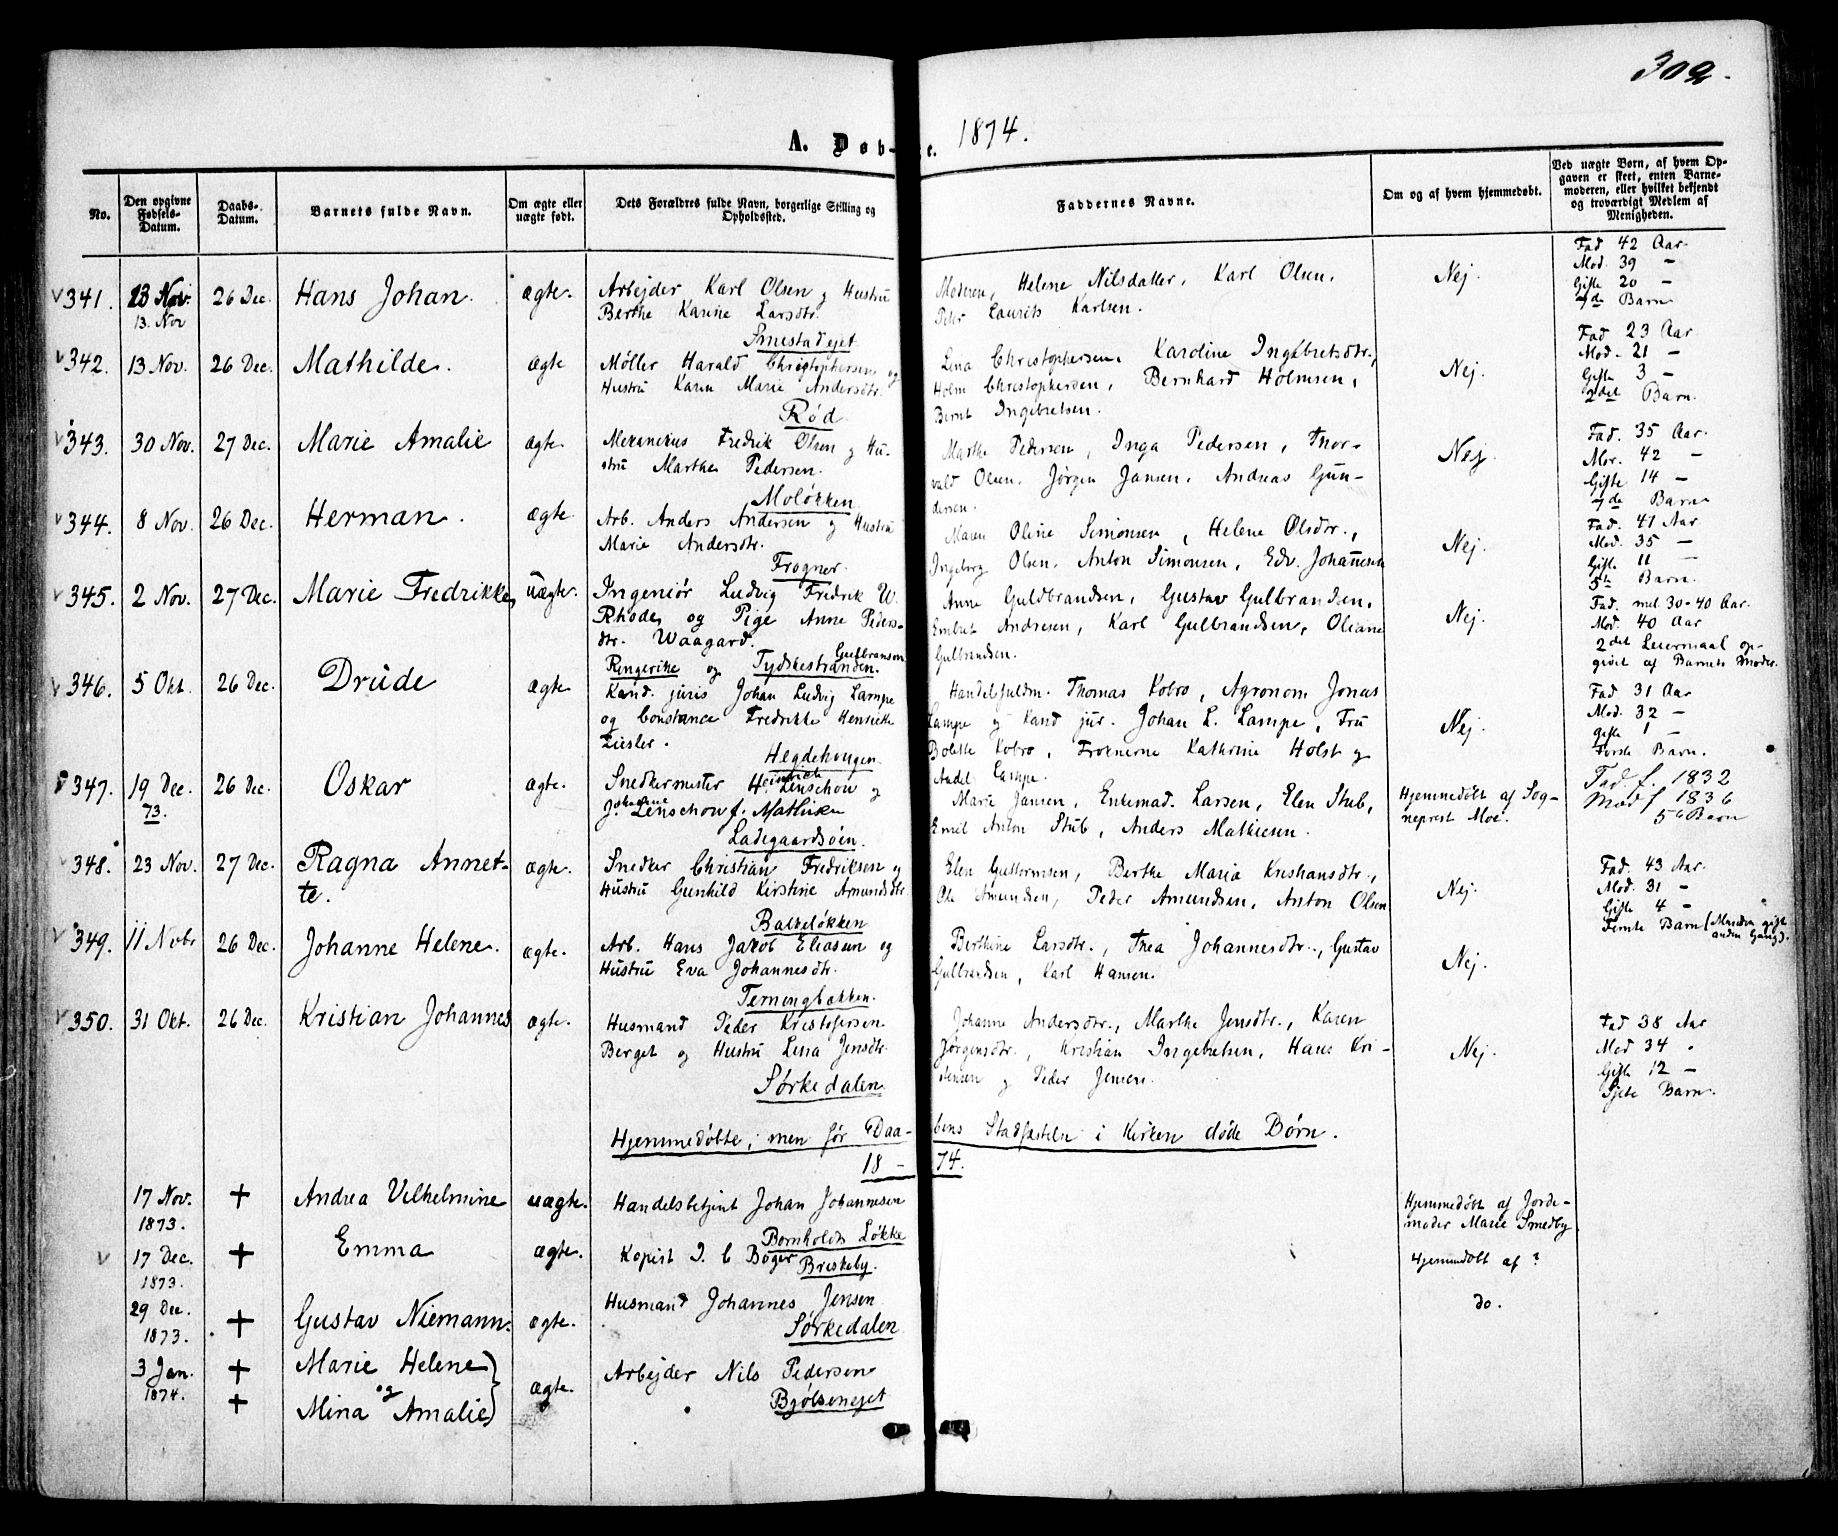 302.
A. Døb- e. 1874.
No.
Den opgivne Fødsels-Datum.
Daabs-Datum.
Barnets fulde Navn.
Om ægte eller uægte født.
Dets Forældres fulde Navn, borgerlige Stilling og Opholdssted.
Faddernes Navne.
Om og af hvem hjemmedøbt.
Ved uægte Børn, af hvem Opgaven er skeet, enten Barnemoderen, eller hvilket bekjendt og troværdigt Medlem af Menigheden.
341. 13 Nov. 26 Dec. Hans Johan. ægte.
13. Nov
Arbejder Karl Olsen og Hustru
Berthe Karine Larsdtr.
Smestadejet
Moderen, Helene Nilsdatter, Karl Olsen,
Peter Laurits Karlsen.
Nej
Fad 42 Aar.
Mod. 39 –
Gifte 20 –
7de Barn
342. 13 Nov. 26 Dec. Mathilde. ægte
Møller Harald Christophersen og
Hustru Karen Marie Andersdtr.
Rød
Lina Christophersen, Karoline Ingebretsdtr.,
Holm Christophersen, Bernhard Holmsen,
Bernt Ingebretsen.
Nej.
Fad 23 Aar
Mod. 21 –
Gifte 3 –
2det Barn.
343. 30 Nov. 27 Dec. Marie Amalie ægte.
Mekanikus Fredrik Olsen og Hu-
stru Marthe Pedersen.
Moløkken
Marthe Pedersen, Inga Pedersen, Thor-
vald Olsen, Jørgen Jansen, Andreas Gun-
dersen.
Nej
Fad. 35 Aar.
Mor. 42 –
Gifte 14 –
7de Barn
344. 8 Nov. 26 Dec. Herman. ægte.
Arb. Anders Andersen og Hustru
Marie Andersdtr.
Frogner.
Maren Oline Simonsen, Helene Olsdtr.,
Ingeborg Olsen, Anton Simonsen, Edv. Johannesen
Nej.
Fad. 41 Aar
Mod. 35 –
Gifte 11 –
5te Barn.
345. 2 Nov. 27 Dec. Marie Fredrikke, uægte.
Ingeniør Ludvig Fredrik W.
Rhode, og Pige Anne Peders-
dtr. Waagard.
Gulbransen
Ringerike og Tydskestranden.
Anne Guldbrandsen, Gustav Gulbrandsen,
Embret Andresen, Karl Gulbrandsen, Oliane
Gulbrandsen.
Nej.
Fad. mel. 30-40 Aar.
Mod. 40 Aar
2det Leiermaal op-
givet af Barnets Moder.
346. 5 Okt. 26 Dec. Drude ægte.
Kand. juris Johan Ludvig Lampe
og Constance Fredrikke Henrikke
Ziesler.
Hegdehougen
Handelsfuldm. Thomas Kobro, Agronom Jonas
Lampe og Kand jur. Johan L. Lampe, Fru
Bolette Kobro, Frøknerne Kathrine Holst og
Lampe.
Nej
Fad 31 Aar
Mod. 32 –
gifte 1 –
Første Barn.
347. 19 Dec. 26 Dec. Oskar ægte.
73.
Snedkermester Heinrich Linschow og
Johanne Linschow f. Mathisen
Ladegaardsøen.
Marie Jansen, Enkemad. Larsen, Elen Stub,
Emil Anton Stub, Anders Mathiesen.
Hjemmedøbt af Sog-
neprest Moe.
Fad f. 1832
Mod f 1836
5te Barn
348. 23 Nov. 27 Dec. Ragna Annet-
te. ægte.
Snedker Christian Fredriksen og
Hustru Gunhild Kirstine Amundsdtr.
Balkeløkken
Elen Guttormsen, Berthe Maria Kristiansdtr.,
Ole Amundsen, Peder Amundsen, Anton Olsen
Nej.
Fad. 43 Aar.
Mod. 31 –
Gifte 4 –
Femte Barn (Manden gift
anden Gang).
349. 11 Novbr 26 Dec. Johanne Helene. ægte.
Arb. Hans Jakob Eliasen og
Hustru Eva Johannesdtr.
Berthine Larsdtr., Thea Johannesdtr., Gustav
Gulbrandsen, Karl Hansen.
Nej.
350. 31 Okt. 26 Dec. Kristian Johannes ægte.
Husmand Peder Kristofersen
Berget og Hustru Lina Jensdtr.
Sørkedalen
Johanne Andersdtr., Marthe Jensdtr., Karen
Jørgensdtr., Kristian Ingebretsen, Hans Kri-
stensen og Peder Jensen.
Nej.
Fad 38 Aar
Mod 34 .
Gifte 12 –
Sjette Barn.
Hjemmedøbte, men før Daa- bens Stadfæstelse i Kirken døde Børn.
18 – 74.
17 Nov. + Andrea Vilhelmine uægte.
1873.
Handelsbetjent Johan Johannesen
Bornholds Løkke
Hjemmedøbt af Jorde-
moder Marie Smedby.
17 Dec. + Emma ægte.
1873.
Kopist I. C Bøger
Briskeby.
Hjemmedøbt af ?
29 Dec. + Gustav Niemann. ægte.
1873.
Husmand Johannes Jensen
Sørkedalen
do.
3 Jan. + Marie Helene
1874. og ægte.
+ Mina Amalie
Arbejder Nils Pedersen
Bjølsenejet